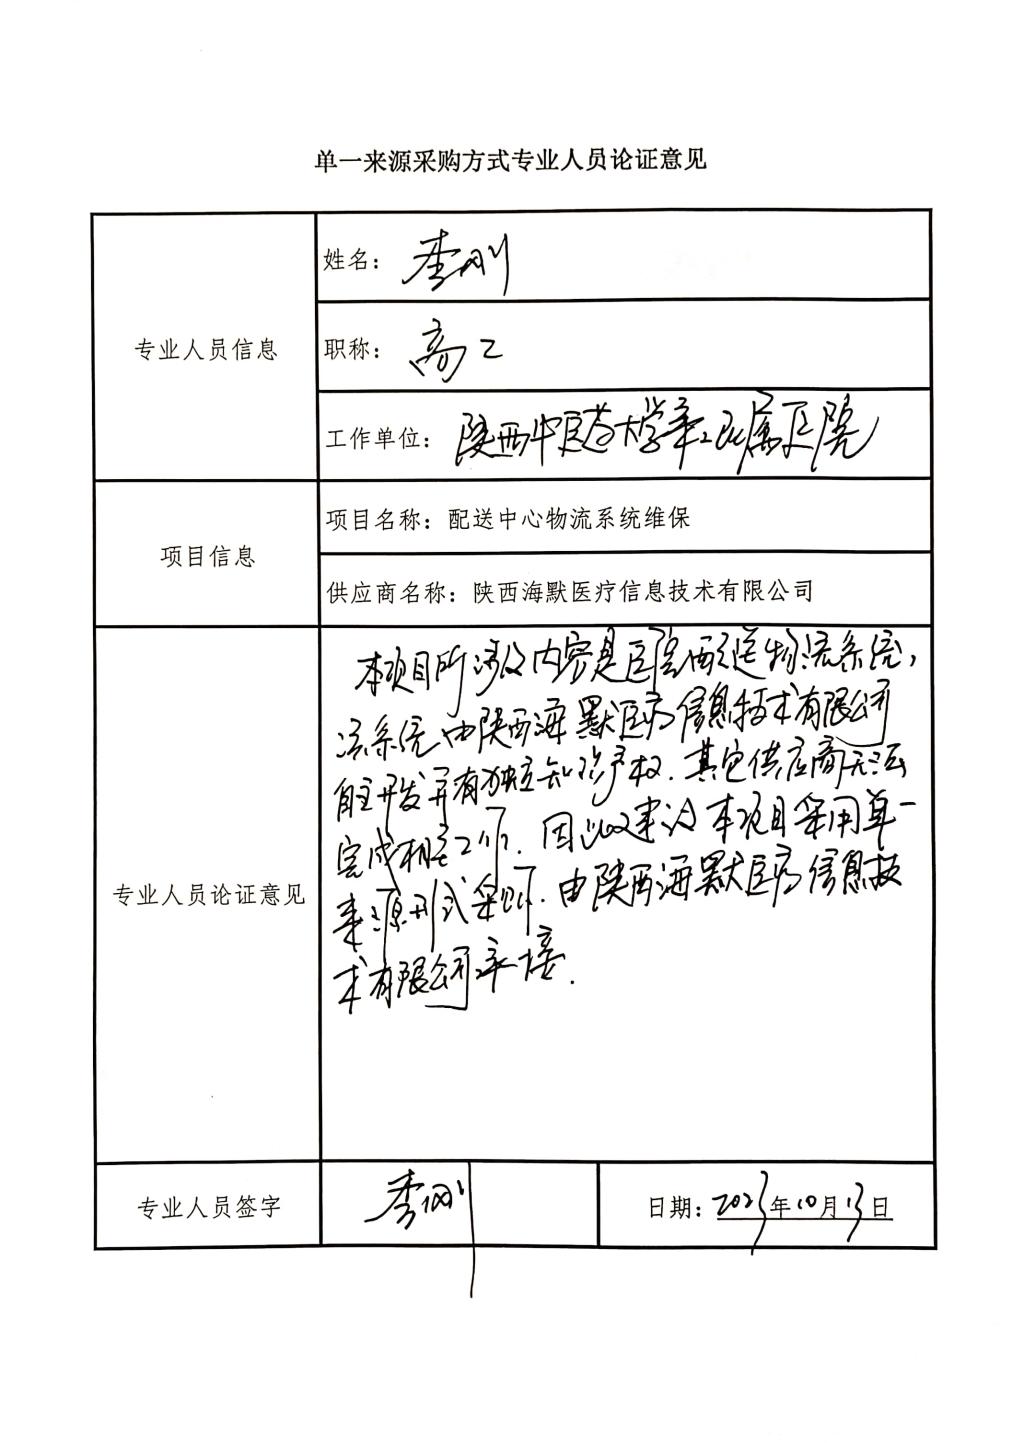 单一来源采购方式专业人员论证意见
专业人员信息
姓名：李刚
职称：高工
工作单位：陕西中医药大学第二附属医院
项目信息
项目名称：配送中心物流系统维保
供应商名称：陕西海默医疗信息技术有限公司
专业人员论证意见
本项目所涉及内容是医院配送物流系统，
该系统由陕西海默医疗信息技术有限公司
自主开发并有独立知识产权.其它供应商无法
完成相关工作.因此建议本项目采用单一
来源形式采购.由陕西海默医疗信息技
术有限公司承接.
专业人员签字
李刚
日期：2023年10月13日